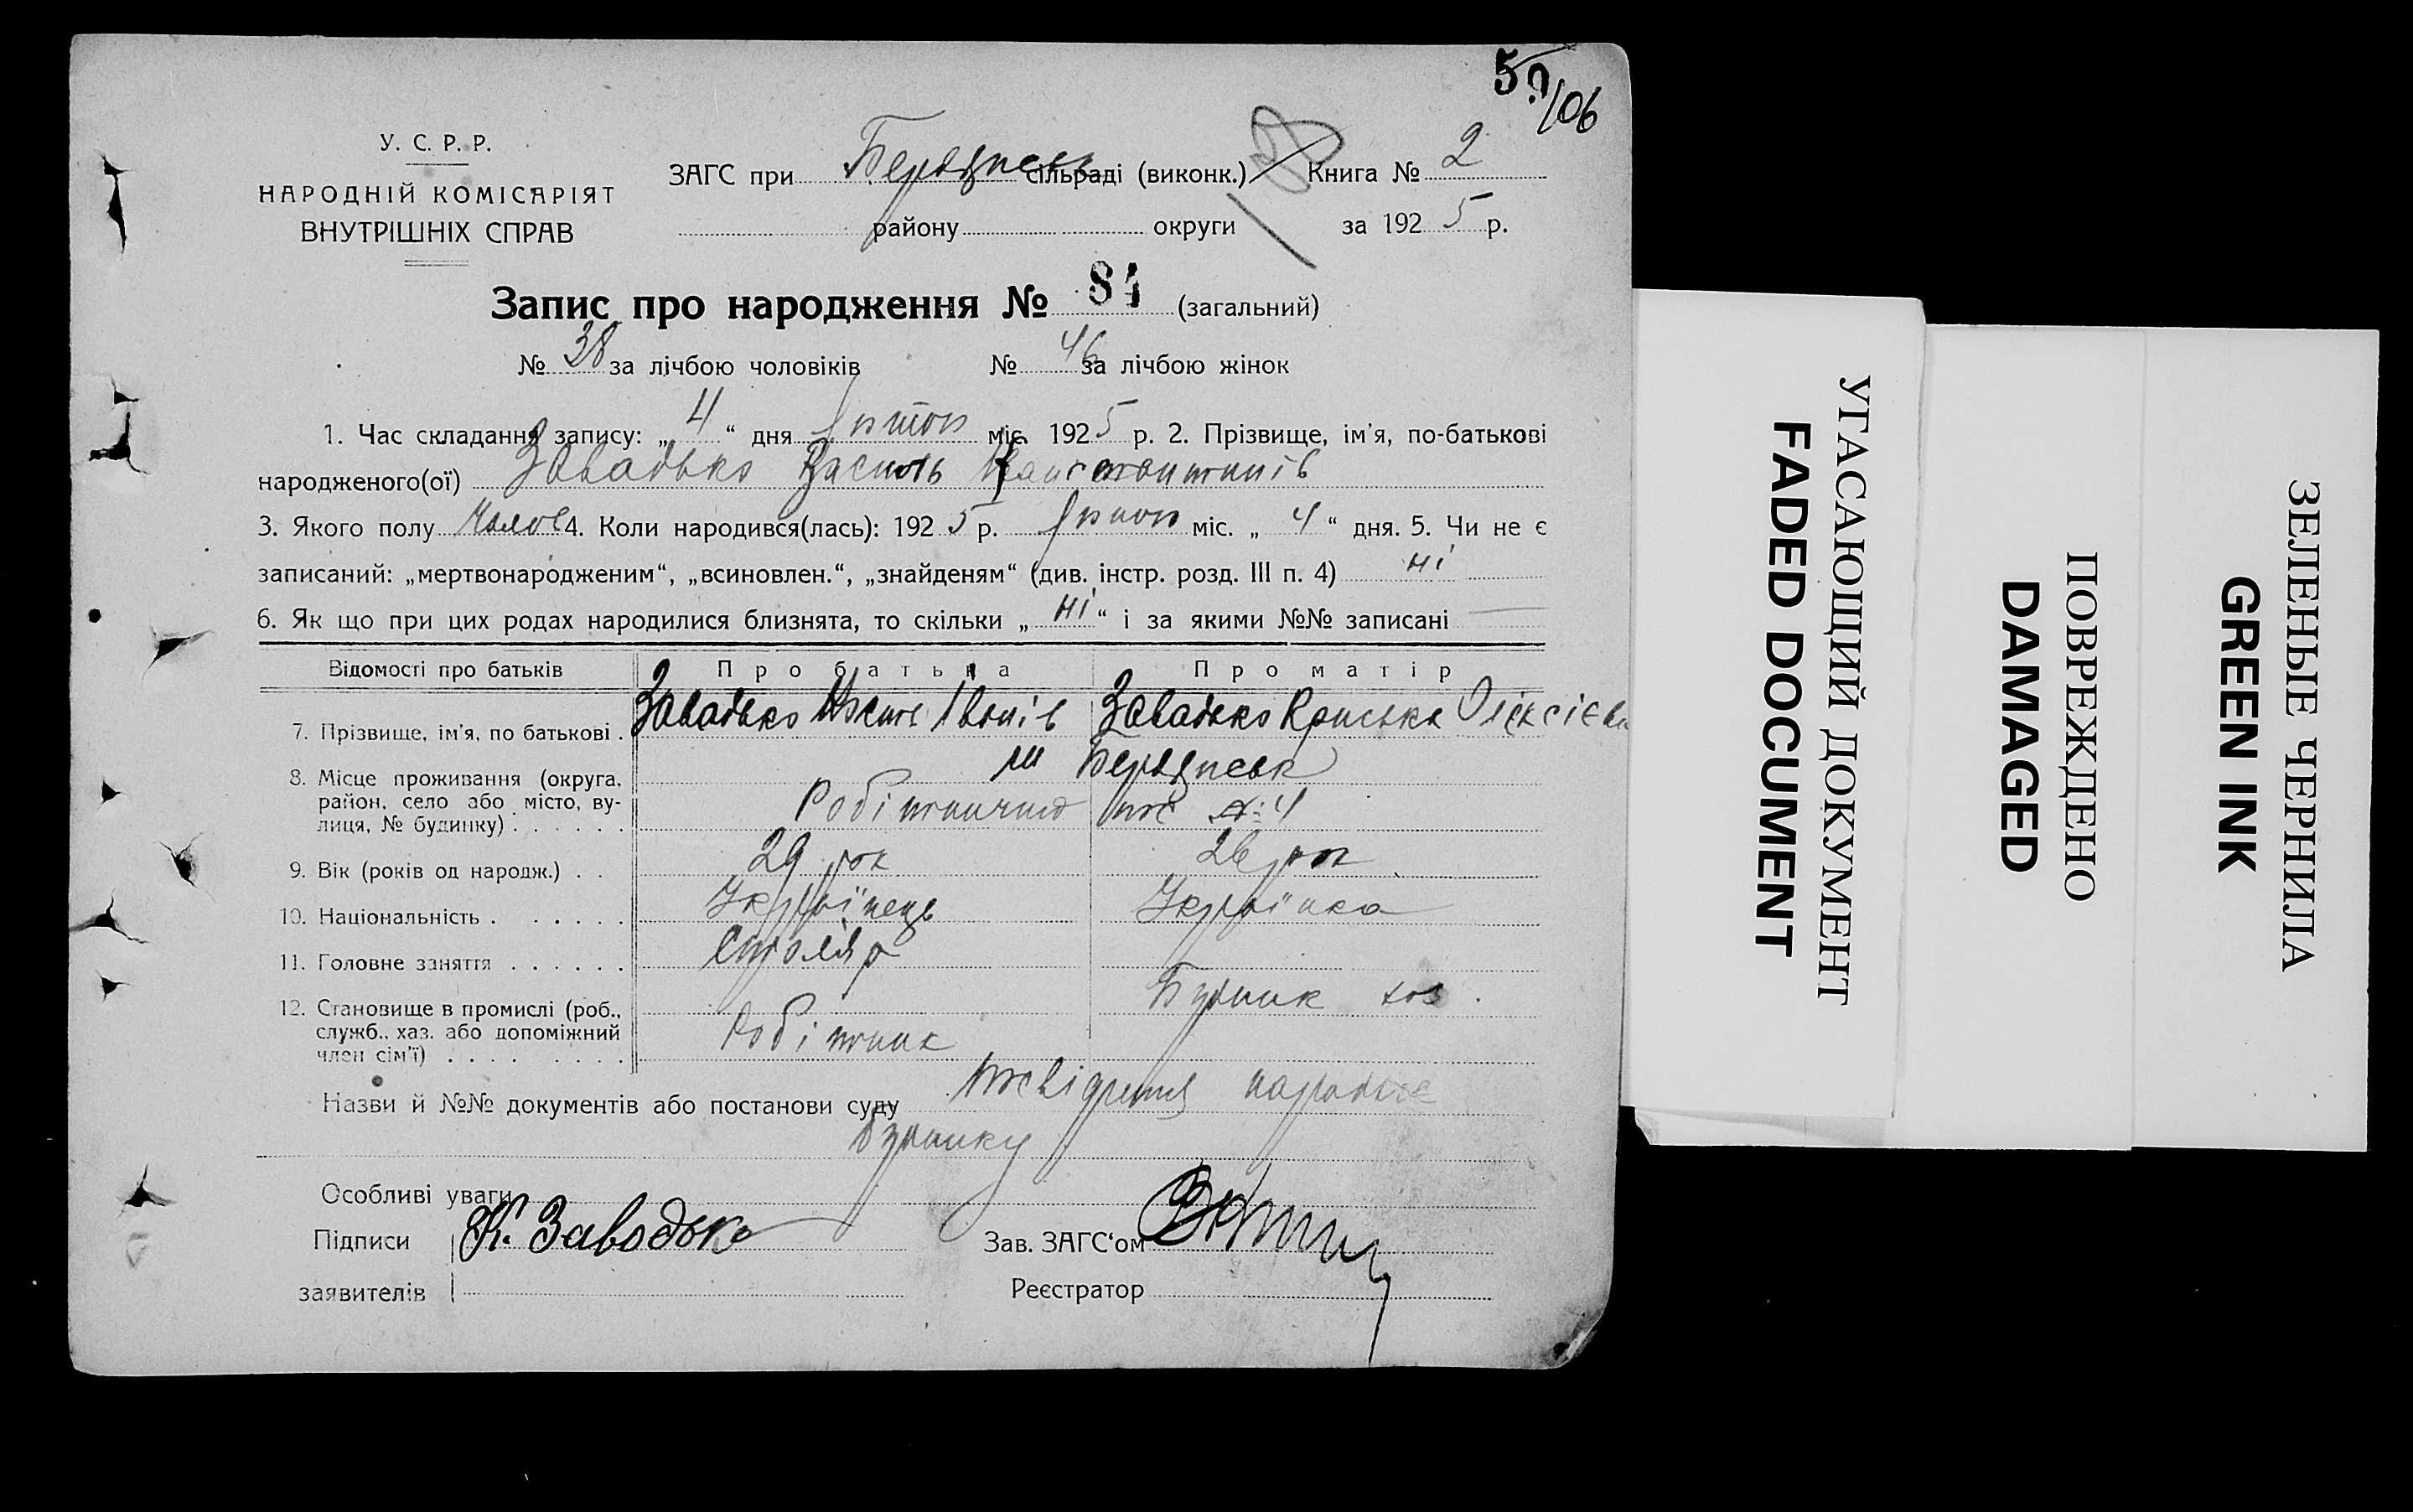 50/106
У. С. Р. Р.
НАРОДНІЙ КОМІСАРІЯТ
ВНУТРІШНІХ СПРАВ
ЗАГС при Бердянськ сільраді (виконк.) Книга № 2
району округи за 1925 р.
Запис про народження № 84 (загальний)
№ 38 за лічбою чоловіків № 46 за лічбою жінок
1. Час складання запису: „4“ дня міс. 1925 р. 2. Прізвище, ім'я, по-батькові
народженого(ої) Завадько Василь Констонтинів
3. Якого полу Чолов 4. Коли народився(лась): 1925 р. міс. „4“ дня. 5. Чи не є
записаний: „мертвонародженим“, „всиновлен.“, „знайденям“ (див. інстр. розд. III п. 4) ні
6. Як що при цих родах народилися близнята, то скільки „ні“ і за якими №№ записані
Відомості про батьків Про батька Про матір
7. Прізвище, ім'я, по батькові . Завадько Іванів Завадько Олексієвн
8. Місце проживання (округа, м Бердянськ
район, село або місто, ву-
лиця, № будинку) . . . . . . Робітнича № 4
9. Вік (років од народж.) . . 29 рок 26 рок
10. Національність . . . . . . Українець Українка
11. Головне заняття . . . . . . Столяр
12. Становище в промислі (роб.,
служб., хаз. або допоміжний
член сім'ї) . . . . . . . . Робітник
Назви й №№ документів або постанови суду
Особливі уваги
Підписи К. Заводько Зав. ЗАГС‘ом
заявителів Реєстратор
УГАСАЮЩИЙ ДОКУМЕНТ
FADED DOCUMENT
ПОВРЕЖДЕНО
DAMAGED
ЗЕЛЕНЫЕ ЧЕРНИЛА
GREEN INK